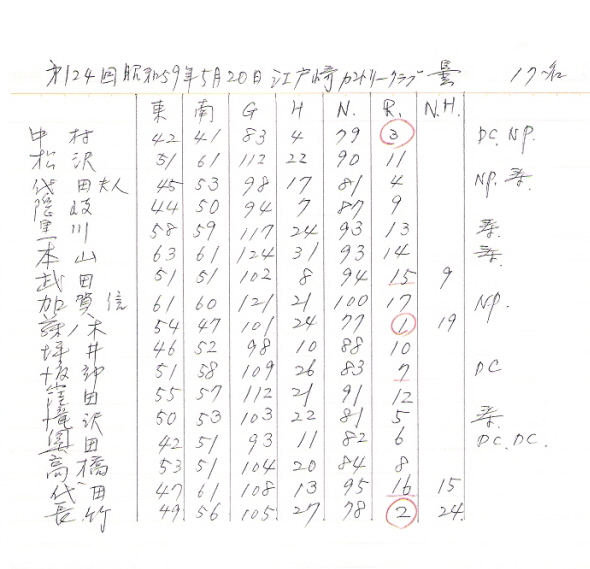 第124回昭和59年5月20日江戸崎カントリークラブ 曇 17名
東 南 G H N. R. N.H.
中村 42 41 83 4 79 3 DC. NP.
松沢 51 61 112 22 90 11
代田夫人 45 53 98 17 81 4 NP.
隠岐 44 50 94 7 87 9
黒川 58 59 117 24 93 13
一本山 63 61 124 31 93 14
武田 51 51 102 8 94 15 9
加賀 信 61 60 121 21 100 17 NP.
木 54 47 101 24 77 1 19
坪井 46 52 98 10 88 10
51 58 109 26 83 7 DC
窪田 55 57 112 21 91 12
滝沢 50 53 103 22 81 5
奥田 42 51 93 11 82 6 DC. DC.
高橋 53 51 104 20 84 8
代田 47 61 108 13 95 16 15
長竹 49 56 105 27 78 2 24.